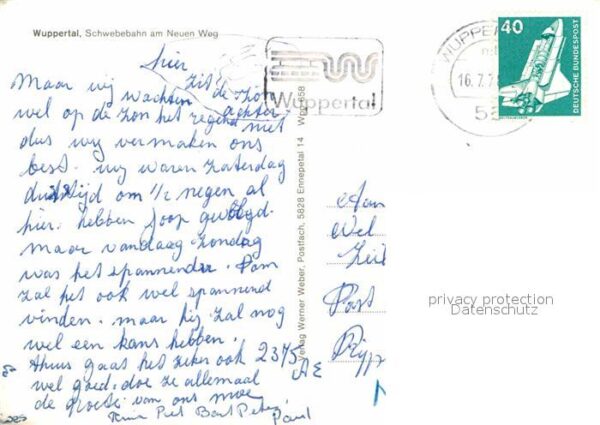 Wuppertal, Schwebebahn am Neuen Weg
hier
Maar wij wachten
zit de zon
achter
wel op de zon het regend niet
dus wij vermaken ons
best. wij waren Zaterdag
tijd om 1/2 negen al
hier. hebben Joop
maar vandaag Zondag
was het spannender.
zal het ook wel spannend
vinden. maar hij zal nog
wel een kans hebben.
Thuis gaat het zeker ook
wel goed. doe ze allemaal
de groeten van ons
Piet Bart Peter
Paul
Verlag Werner Weber, Postfach, 5828 Ennepetal 14
Wuppertal
WUPPER
16.7.7
40
DEUTSCHE BUNDESPOST
Aan
Post
2375
AE
privacy protection
Datenschutz